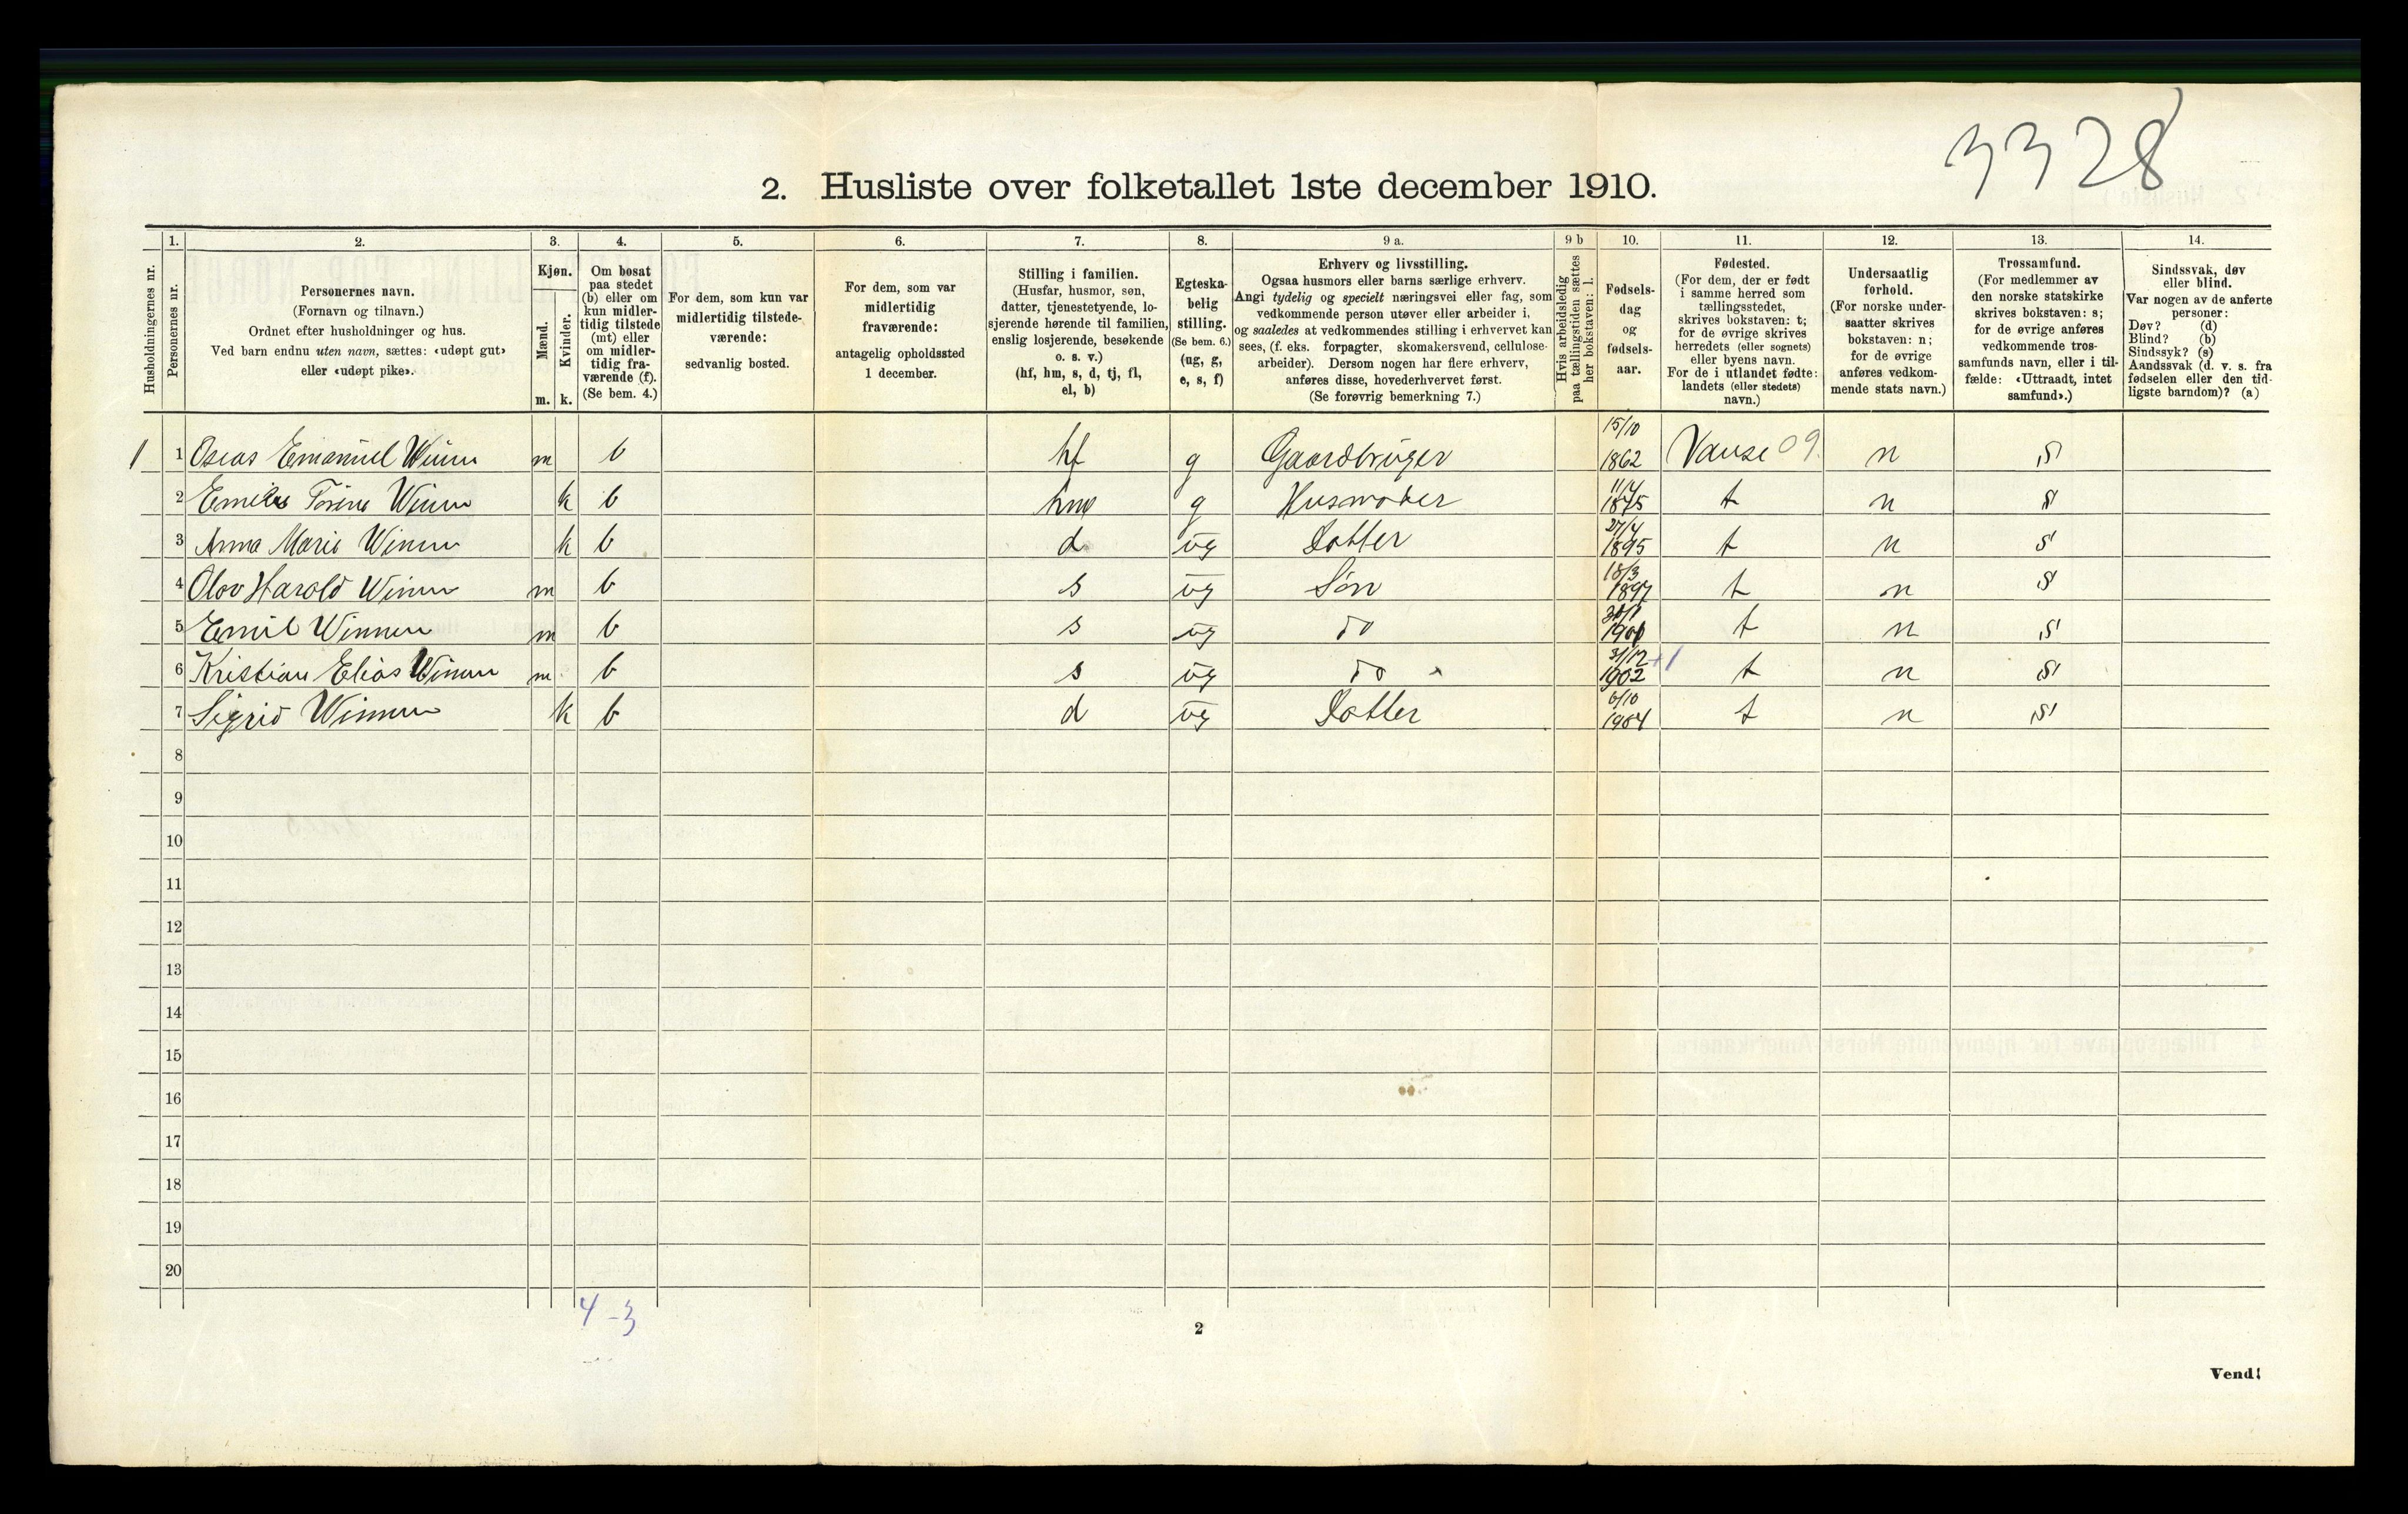 3328
2. Husliste over folketallet 1ste december 1910.
Husholdningernes nr.
1.
Personernes nr.
2.
Personernes navn.
(Fornavn og tilnavn.)
Ordnet efter husholdninger og hus.
Ved barn endnu uten navn, sættes: «udøpt gut»
eller «udøpt pike».
3.
Kjøn.
Mænd.
m.
Kvinder.
k.
4.
Om bosat
paa stedet
(b) eller om
kun midler-
tidig tilstede
(mt) eller
om midler-
tidig fra-
værende (f).
(Se bem. 4.)
5.
For dem, som kun var
midlertidig tilstede-
værende:
sedvanlig bosted.
6.
For dem, som var
midlertidig
fraværende:
antagelig opholdssted
1 december.
7.
Stilling i familien.
(Husfar, husmor, søn,
datter, tjenestetyende, lo-
sjerende hørende til familien,
enslig losjerende, besøkende
o. s. v.)
(hf, hm, s, d, tj, fl,
el, b)
8.
Egteska-
belig
stilling.
(Se bem. 6.)
(ug, g,
e, s, f)
9 a.
Erhverv og livsstilling.
Ogsaa husmors eller barns særlige erhverv.
Angi tydelig og specielt næringsvei eller fag, som
vedkommende person utøver eller arbeider i,
og saaledes at vedkommendes stilling i erhvervet kan
sees, (f. eks. forpagter, skomakersvend, cellulose-
arbeider). Dersom nogen har flere erhverv,
anføres disse, hovederhvervet først.
(Se forøvrig bemerkning 7.)
9 b
Hvis arbeidsledig
paa tællingstiden sættes
her bokstaven: l.
10.
Fødsels-
dag
og
fødsels-
aar.
11.
Fødested.
(For dem, der er født
i samme herred som
tællingsstedet,
skrives bokstaven: t;
for de øvrige skrives
herredets (eller sognets)
eller byens navn.
For de i utlandet fødte:
landets (eller stedets)
navn.)
12.
Undersaatlig
forhold.
(For norske under-
saatter skrives
bokstaven: n;
for de øvrige
anføres vedkom-
mende stats navn.)
13.
Trossamfund.
(For medlemmer av
den norske statskirke
skrives bokstaven: s;
for de øvrige anføres
vedkommende tros-
samfunds navn, eller i til-
fælde: «Uttraadt, intet
samfund».)
14.
Sindssvak, døv
eller blind.
Var nogen av de anførte
personer:
Døv? (d)
Blind? (b)
Sindssyk? (s)
Aandssvak (d. v. s. fra
fødselen eller den tid-
ligste barndom)? (a)
1 1 Oseas Emanuel m b hf g Gaardbruger 15/10 1862 Vanse 09. n S
2 k b hm g Husmoder 11/4 1875 t n S
3 Anna Marie k b d ug Datter 27/4 1895 t n S
4 Olav Harald m b s ug Søn 18/3 1897 t n S
5 Emil m b s ug do t n S
6 Kristian Elias m b s ug do 31/12 1902 +1 t n S
7 Sigrid k b d ug Datter 6/10 1904 t n S
8
9
10
11
12
13
14
15
16
17
18
19
20
4-3
2
Vend!